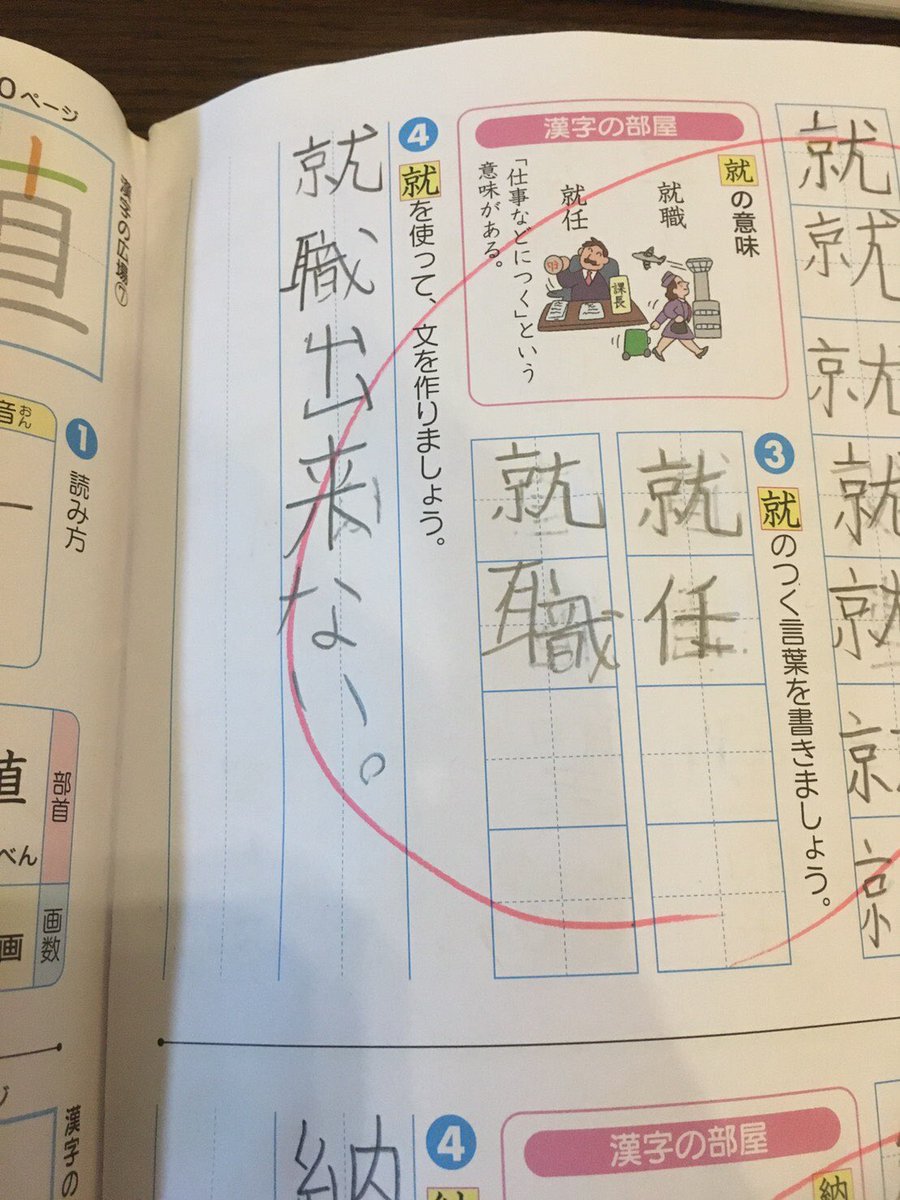 就
就
就
就
就
漢字の部屋
就の意味
就職
就任
課長
「仕事などにつく」という
意味がある。
3 就のつく言葉を書きましょう。
就任
就職
4 就を使って、文を作りましょう。
就職出来ない。
漢字の部屋
納
4
納
0ページ
1 読み方
音
おん
部首
べん
画数
画
直
漢字の